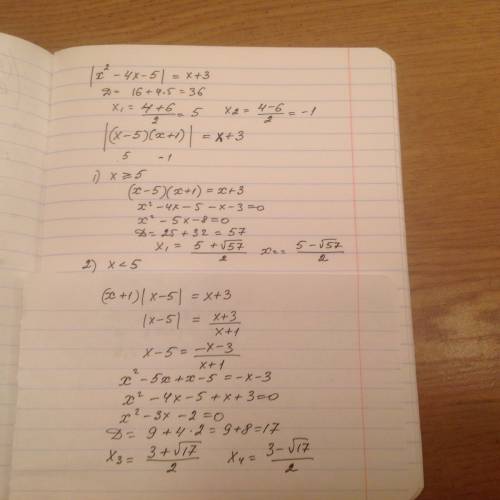 |x² - 4x - 5| = x+3
D = 16 + 4·5 = 36
x₁ = (4+6)/2 = 5    x₂ = (4-6)/2 = -1
|(x-5)(x+1)| = x+3
5    -1
1) x ≥ 5
(x-5)(x+1) = x+3
x² - 4x - 5 - x - 3 = 0
x² - 5x - 8 = 0
D = 25 + 32 = 57
x₁ = (5 + √57)/2    x₂ = (5 - √57)/2
2) x < 5
(x+1)|x-5| = x+3
|x-5| = (x+3)/(x+1)
x-5 = (-x-3)/(x+1)
x² - 5x + x - 5 = -x - 3
x² - 4x - 5 + x + 3 = 0
x² - 3x - 2 = 0
D = 9 + 4·2 = 9+8 = 17
x₃ = (3 + √17)/2    x₄ = (3 - √17)/2